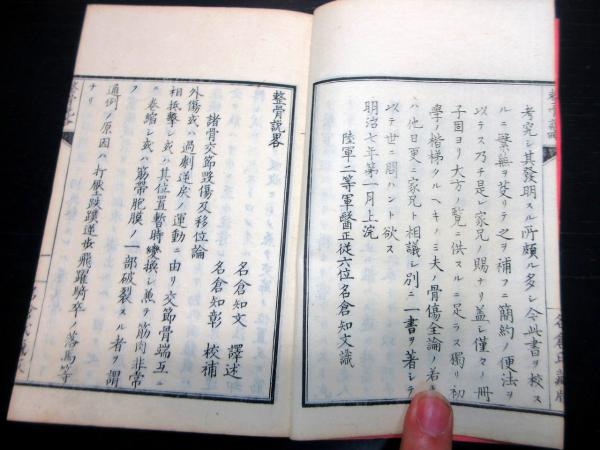 考究シ其發明スル所頗ル多シ今此書ヲ校ス
ルニ繁蕪ヲ芟リテ之ヲ補フニ簡約ノ便法ヲ
以テス乃チ是レ家兄ノ賜ナリ蓋シ僅々ノ冊
子固ヨリ大方ノ覧ニ供スルニ足ラス獨リ初
學ノ楷梯タルヘキノミ夫ノ骨傷全論ノ若キ
ハ他日更ニ家兄ト相議シ別ニ一書ヲ著シテ
以テ世ニ問ハント欲ス
明治七年第一月上浣
陸軍二等軍醫正從六位名倉知文識
整骨說畧
名倉知文 譯述
名倉知彰 校補
諸骨交節毀傷及移位論
外傷或ハ過劇逆戻ノ運動ニ由リ交節骨端互ニ
相抵擊シ或ハ其位置暫時變換シ兼テ筋肉非常
ニ卷縮シ或ハ筋帶肥膜ノ一部破裂スル者ヲ謂
ナリ
通例ノ原因ハ打壓跌蹼逆歩飛躍騎卒ノ落馬等